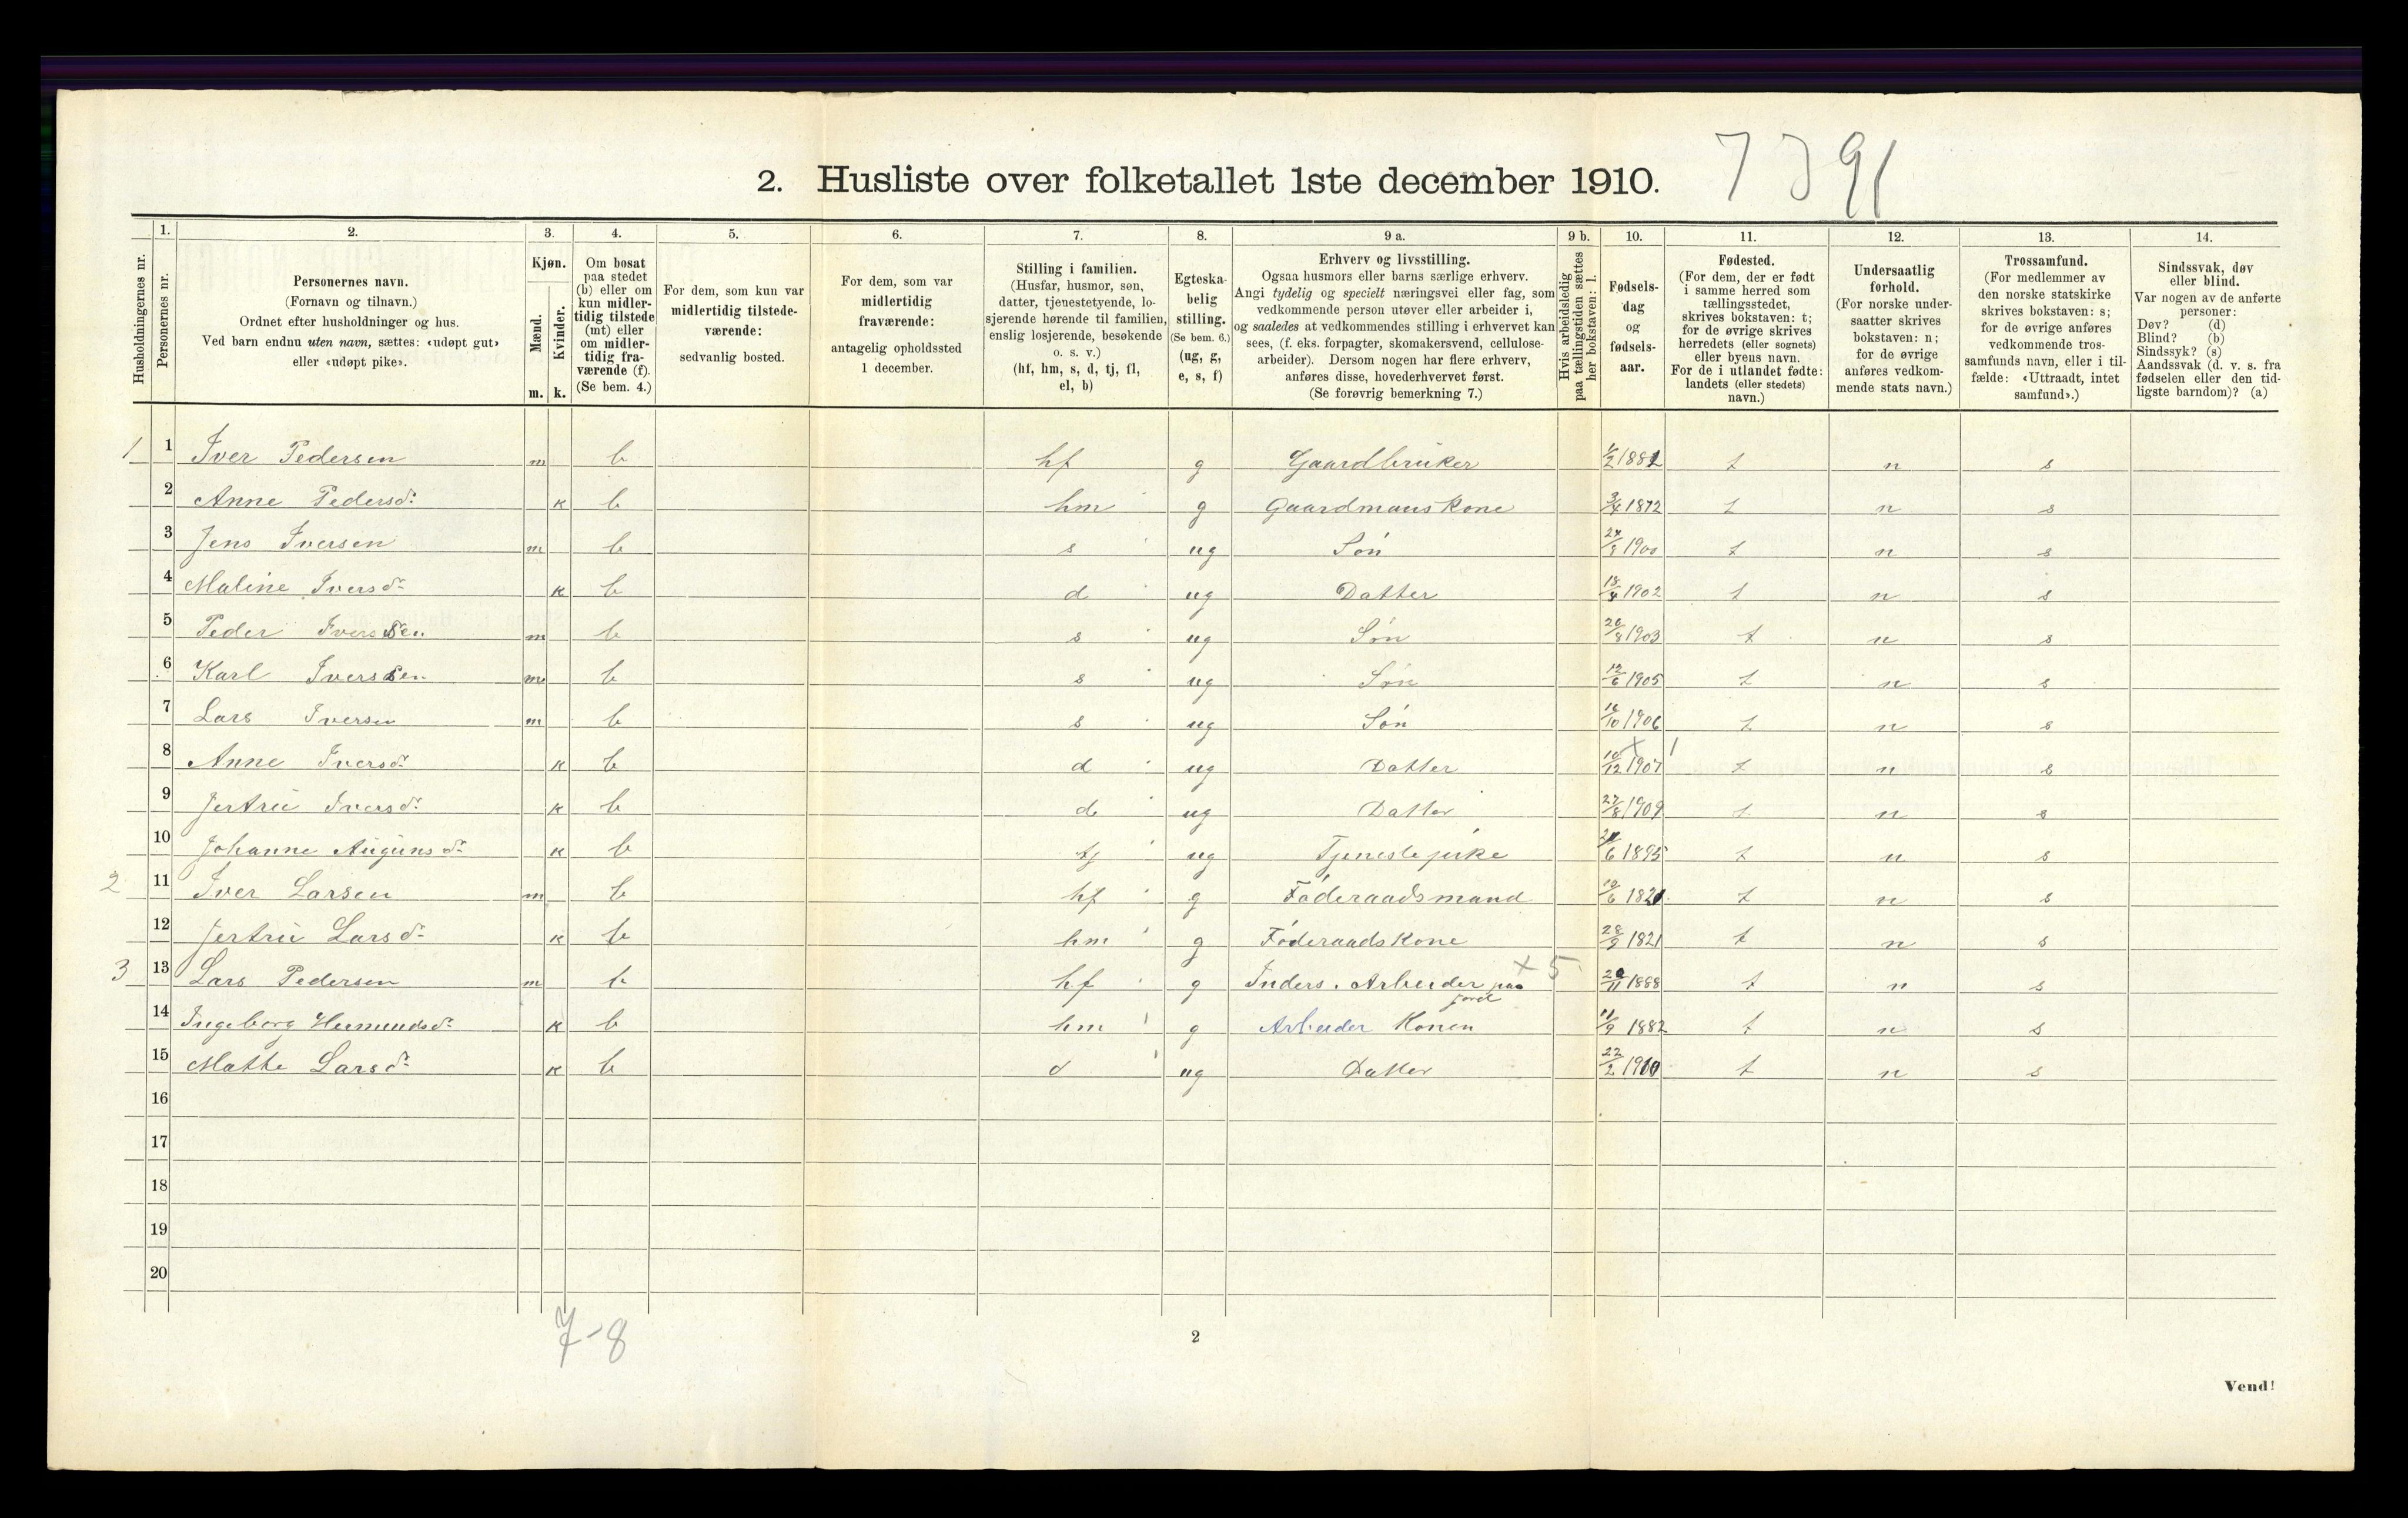 2. Husliste over folketallet 1ste december 1910. 7 391
Husholdningernes nr.
1. Personernes nr.
2. Personernes navn.
(Fornavn og tilnavn.)
Ordnet efter husholdninger og hus.
Ved barn endnu uten navn, sættes: «udøpt gut»
eller «udøpt pike».
3. Kjøn.
Mænd. m.
Kvinder. k.
4. Om bosat
paa stedet
(b) eller om
kun midler-
tidig tilstede
(mt) eller
om midler-
tidig fra-
værende (f).
(Se bem. 4.)
5. For dem, som kun var
midlertidig tilstede-
værende:
sedvanlig bosted.
6. For dem, som var
midlertidig
fraværende:
antagelig opholdssted
1 december.
7. Stilling i familien.
(Husfar, husmor, søn,
datter, tjenestetyende, lo-
sjerende hørende til familien,
enslig losjerende, besøkende
o. s. v.)
(hf, hm, s, d, tj, fl,
el, b)
8. Egteska-
belig
stilling.
(Se bem. 6.)
(ug, g,
e, s, f)
9 a. Erhverv og livsstilling.
Ogsaa husmors eller barns særlige erhverv.
Angi tydelig og specielt næringsvei eller fag, som
vedkommende person utøver eller arbeider i,
og saaledes at vedkommendes stilling i erhvervet kan
sees, (f. eks. forpagter, skomakersvend, cellulose-
arbeider). Dersom nogen har flere erhverv,
anføres disse, hovederhvervet først.
(Se forøvrig bemerkning 7.)
9 b. Hvis arbeidsledig
paa tællingstiden sættes
her bokstaven: l.
10. Fødsels-
dag
og
fødsels-
aar.
11. Fødested.
(For dem, der er født
i samme herred som
tællingsstedet,
skrives bokstaven: t;
for de øvrige skrives
herredets (eller sognets)
eller byens navn.
For de i utlandet fødte:
landets (eller stedets)
navn.)
12. Undersaatlig
forhold.
(For norske under-
saatter skrives
bokstaven: n;
for de øvrige
anføres vedkom-
mende stats navn.)
13. Trossamfund.
(For medlemmer av
den norske statskirke
skrives bokstaven: s;
for de øvrige anføres
vedkommende tros-
samfunds navn, eller i til-
fælde: «Uttraadt, intet
samfund».)
14. Sindssvak, døv
eller blind.
Var nogen av de anførte
personer:
Døv? (d)
Blind? (b)
Sindssyk? (s)
Aandssvak (d. v. s. fra
fødselen eller den tid-
ligste barndom)? (a)
1 1 Iver Pedersen m b hf g Gaardbruker 1/2 1882 t n s
2 Anne Pedersd. k b hm g Gaardmanskone 3/4 1872 t n s
3 Jens Iversen m b s ug Søn 24/8 1900 t n s
4 Maline Iversd. k b d ug Datter 18/4 1902 t n s
5 Peder Iversen m b s ug Søn 26/8 1903 t n s
6 Karl Iversen m b s ug Søn 12/6 1905 t n s
7 Lars Iversen m b s ug Søn 16/10 1906 t n s
8 Anne Iversd. k b d ug Datter 10/12 1907 t n s
9 Jertrü Iversd. k b d ug Datter 27/8 1909 t n s
10 Johanne Auguns d. k b tj ug Tjenestepike 6 1895 t n s
2 11 Iver Larsen m b hf g Føderaadsmand 6 1821 t n s
12 Jertrü Larsd. k b hm g Føderaadskone 28/9 1821 t n s
3 13 Lars Pedersen m b hf g Inders. Arbeider paa jord x 5 20/11 1888 t n s
14 Ingeborg Hermundsd. k b hm g Arbeider Konen 11/9 1882 t n s
15 Mathe Larsd. k b d ug Datter 22/2 1910 t n s
16
17
18
19
20
7-8
2
Vend!